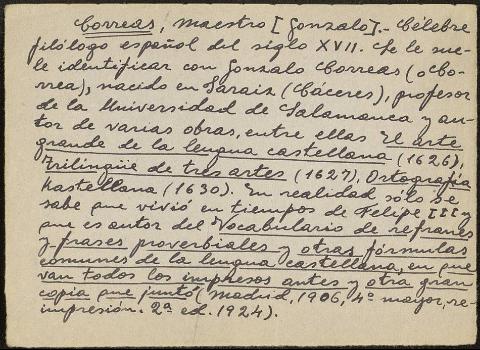 Correas, Maestro [Gonzalo].- Célebre
filólogo español del siglo XVII. Se le sue-
le identificar con Gonzalo Correas (o Co-
rrea), nacido en Jaraiz (Cáceres), profesor
de la Universidad de Salamanca y au-
tor de varias obras, entre ellas El arte
grande de la lengua castellana (1626),
Trilingüe de tres artes (1627), Ortografía
kastellana (1630). En realidad sólo se
sabe que vivió en tiempos de Felipe III y
que es autor del Vocabulario de refranes
y frases proverbiales y otras fórmulas
comunes de la lengua castellana, en que
van todos los impresos antes y otra gran
copia que juntó (Madrid, 1906, 4º mayor, re-
impresión. 2ª ed. 1924).